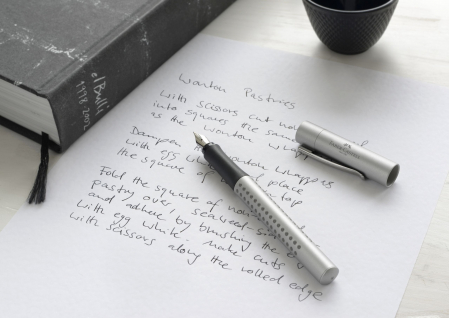 elBulli
1998-2002
Wonton Pastries
With scissors cut no
into squares the same
as the wonton wrapp
Dampen wonton wrappers
with egg
the square of
Fold the square of no
pastry over, seaweed-s
and adhere by brushing the e
with egg white. Make cuts
with scissors along the rolled edge